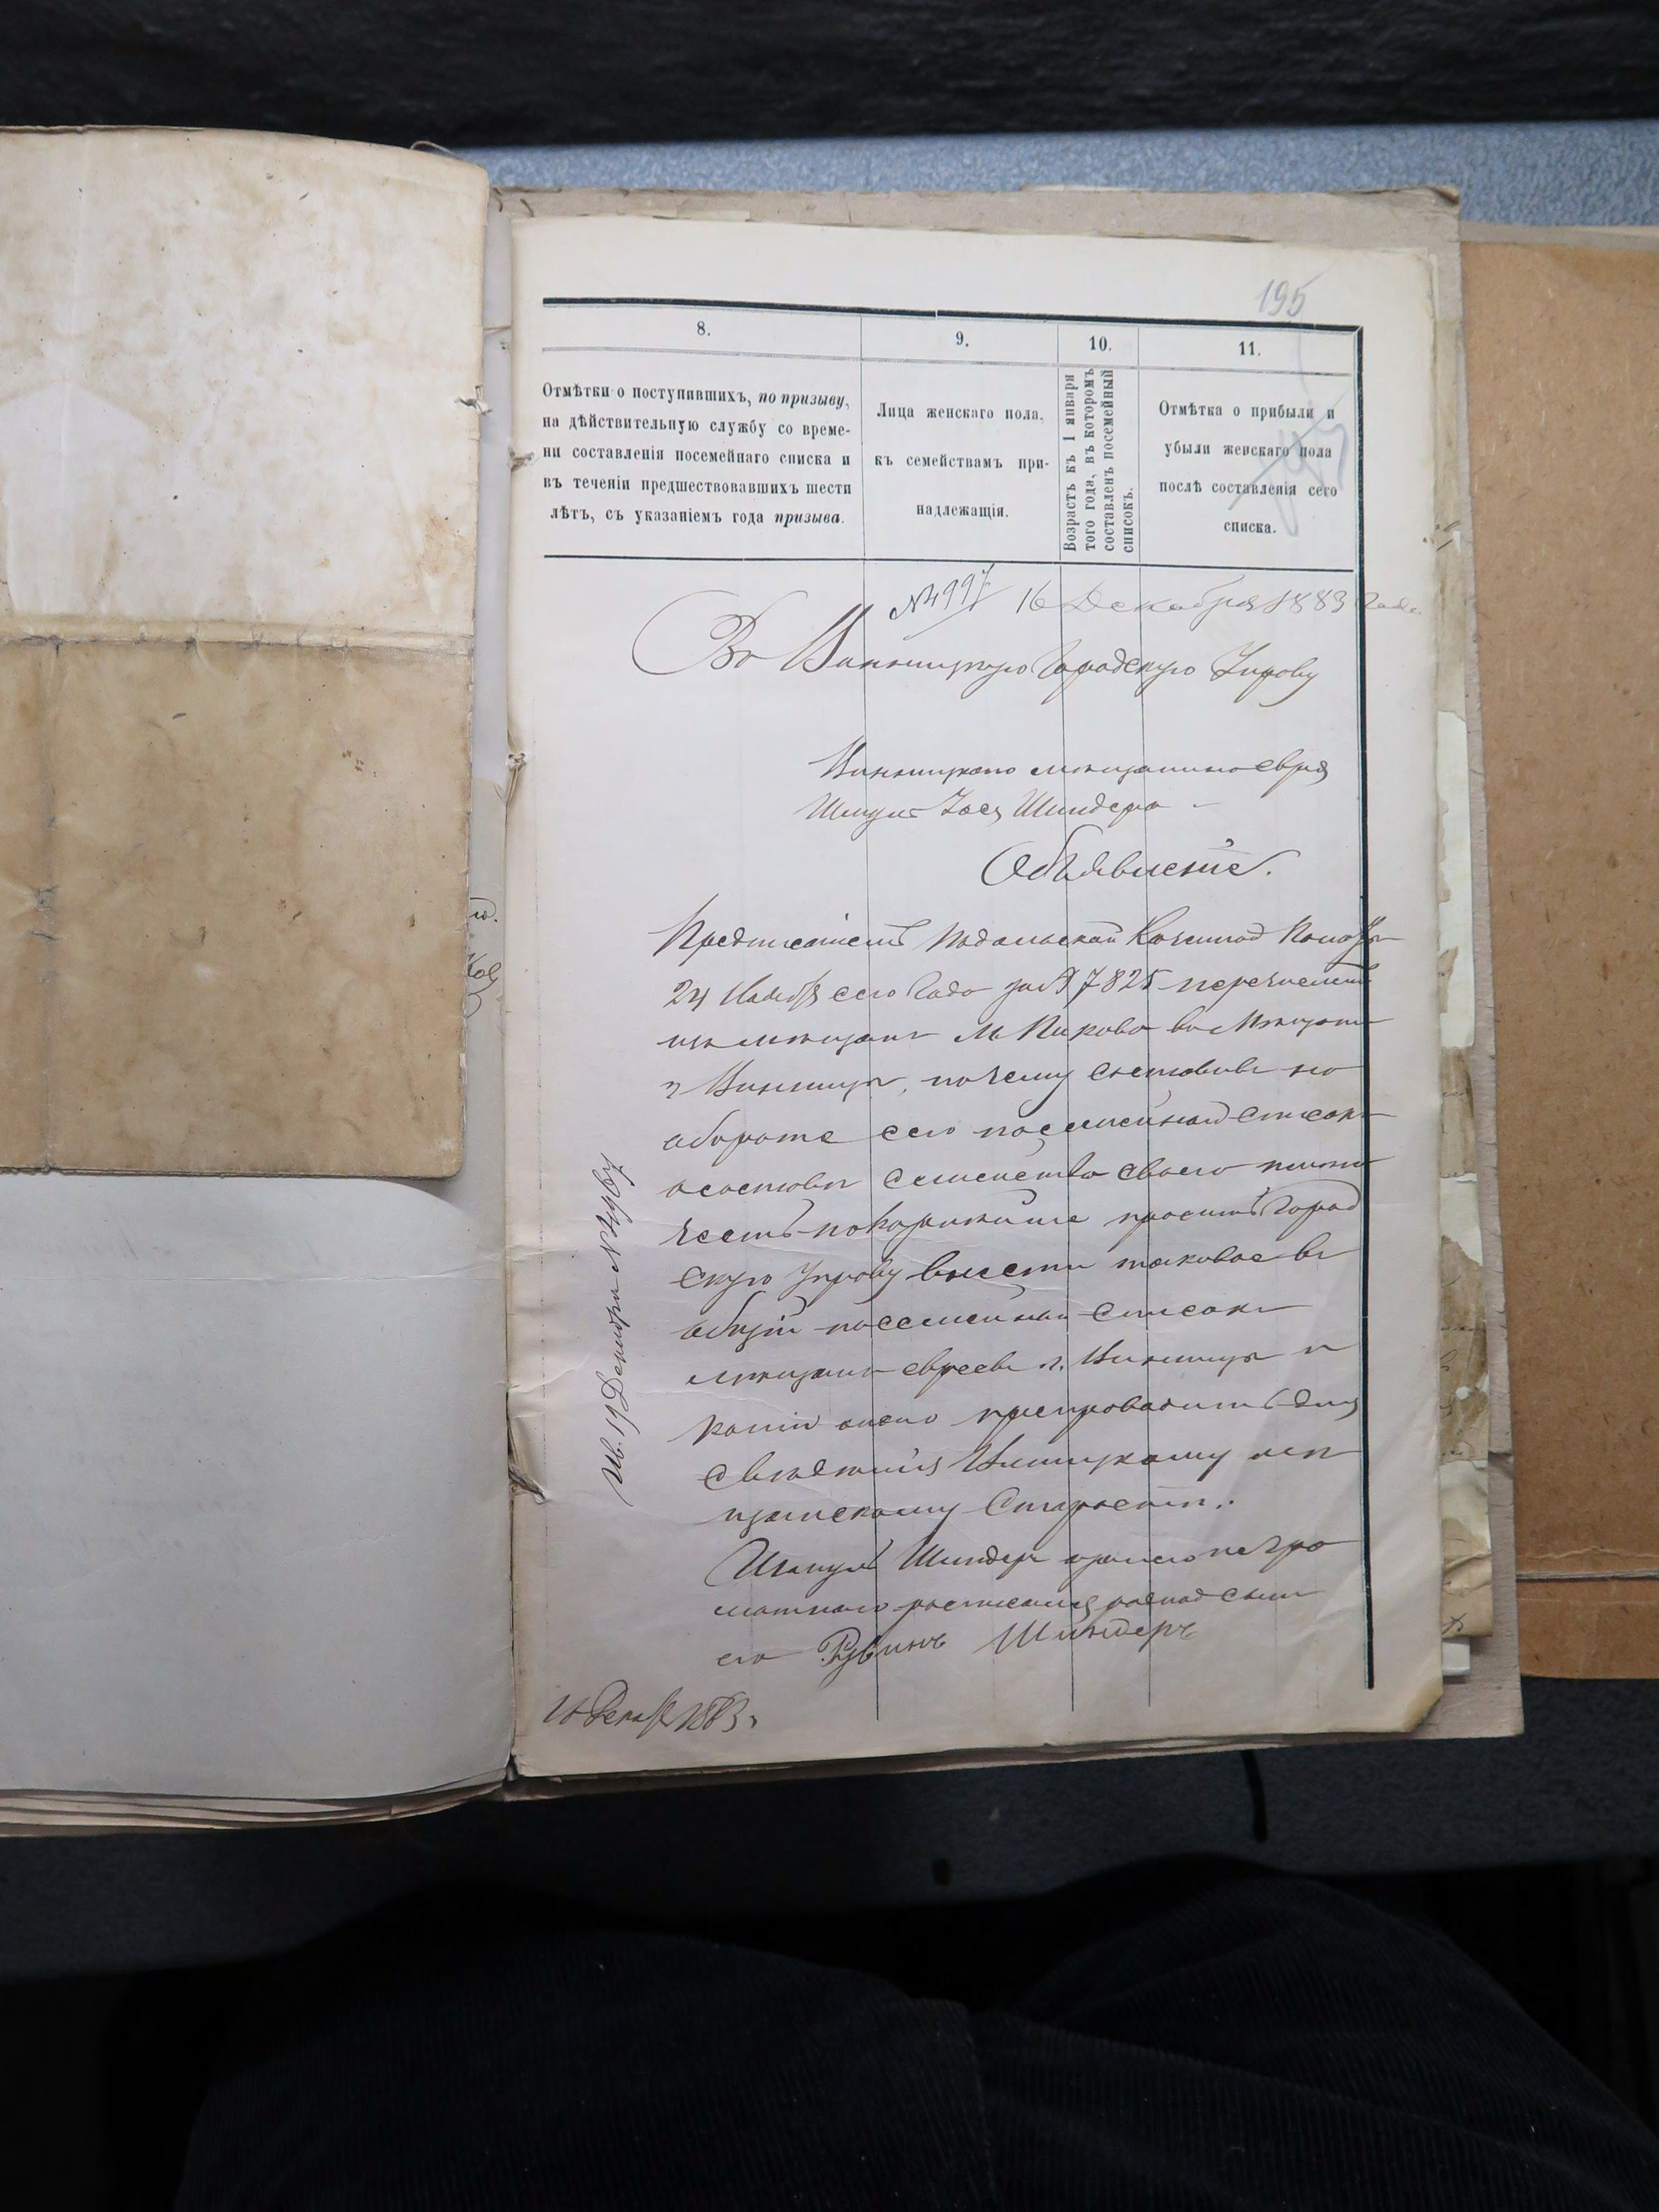 195
8.
9.
10.
11.
Отмѣтки о поступившихъ, по призыву,
на дѣйствительную службу со време-
ни составленія посемейнаго списка и
въ теченіи предшествовавшихъ шести
лѣтъ, съ указаніемъ года призыва.
Лица женскаго пола,
къ семействамъ при-
надлежащія.
Возрастъ къ 1 января
того года, въ которомъ
составленъ посемейный
списокъ.
Отмѣтка о прибыли и
убыли женскаго пола
послѣ составленія сего
списка.
16 Декабря 1883 Года
Во Винницкую Городскую Управу
Винницкаго мѣщанина еврея
Шиндера
Объявленіе.
Предписаніемъ Подольской Казенной Палаты
24 Ноября сего Года за № 7825 перечисленъ
изъ мѣщанъ м Пикова во Мѣщане
г Винницы, почему составивъ на
обороте сего посемейный списокъ
о составѣ Семейства своего имѣю
честь покорнѣйше просить Город
скую Управу внести таковое въ
общій посемейный Списокъ
мѣщанъ евреевъ г. Винницы и
копію онаго препроводить для
свѣдѣнія Винницкому мѣ
щанскому Старостѣ.
Шиндеръ а за него негра
матнаго росписался родной сынъ
его Рувинъ Шиндеръ
16 Декаб 1883 г